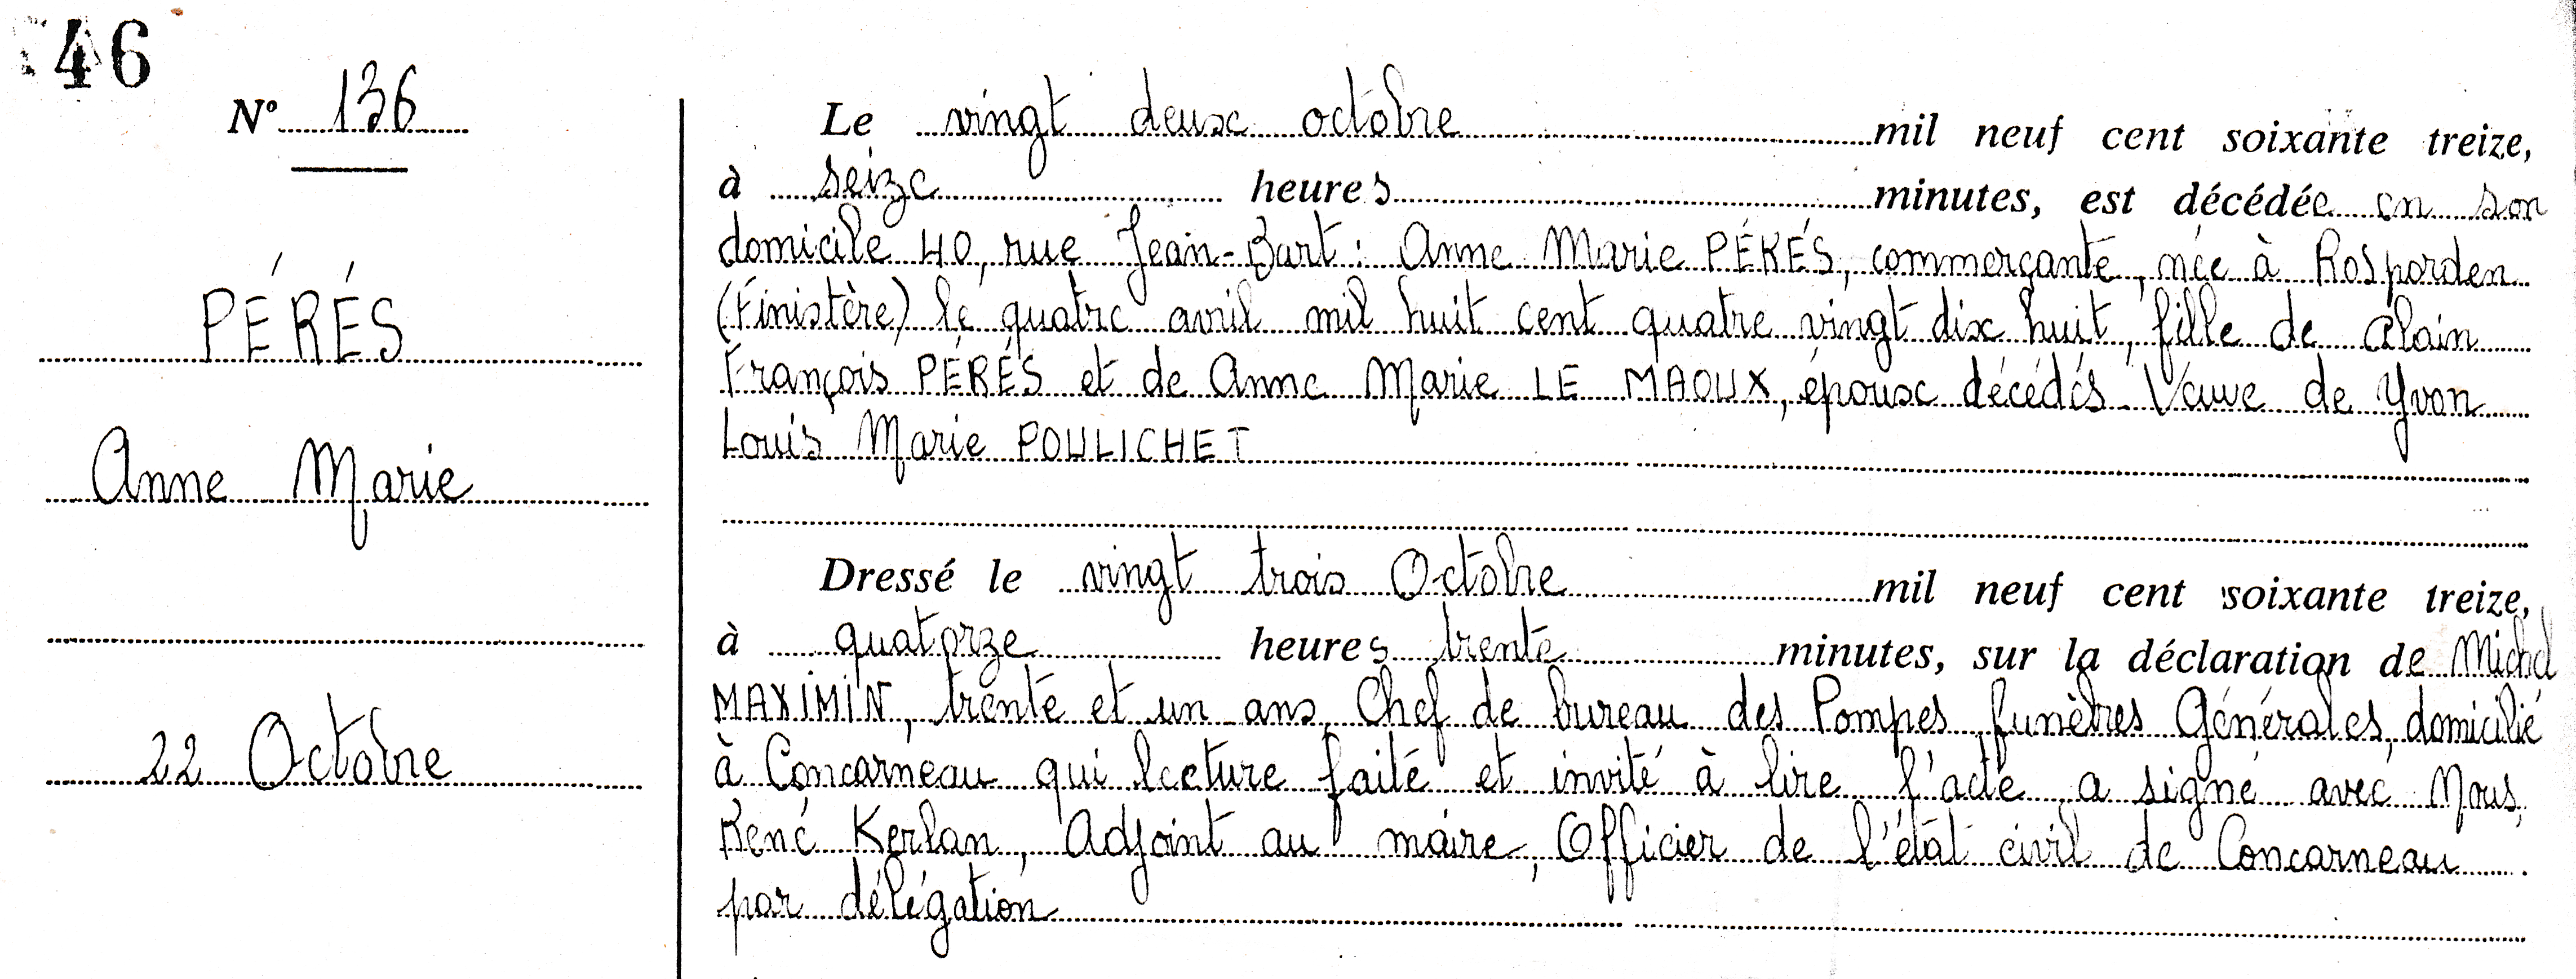 46
N° 136
PÉRÉS
Anne Marie
22 Octobre
Le vingt deux octobre mil neuf cent soixante treize,
à seize heures minutes, est décédée en son
domicile 40, rue Jean-Bart : Anne Marie PÉRÉS, commerçante, née à Rosporden
(Finistère) le quatre avril mil huit cent quatre vingt dix huit, fille de Alain
François PÉRÉS et de Anne Marie LE MAOUX, épouse décédés. Veuve de Yvon
Louis Marie POULICHET
Dressé le vingt trois Octobre mil neuf cent soixante treize,
à quatorze heures trente minutes, sur la déclaration de Michel
MAXIMIN, trente et un ans, Chef de bureau des Pompes funèbres Générales, domicilié
à Concarneau qui lecture faite et invité à lire l'acte, a signé avec Nous,
René Kerlan, Adjoint au maire, Officier de l'état civil de Concarneau
par délégation